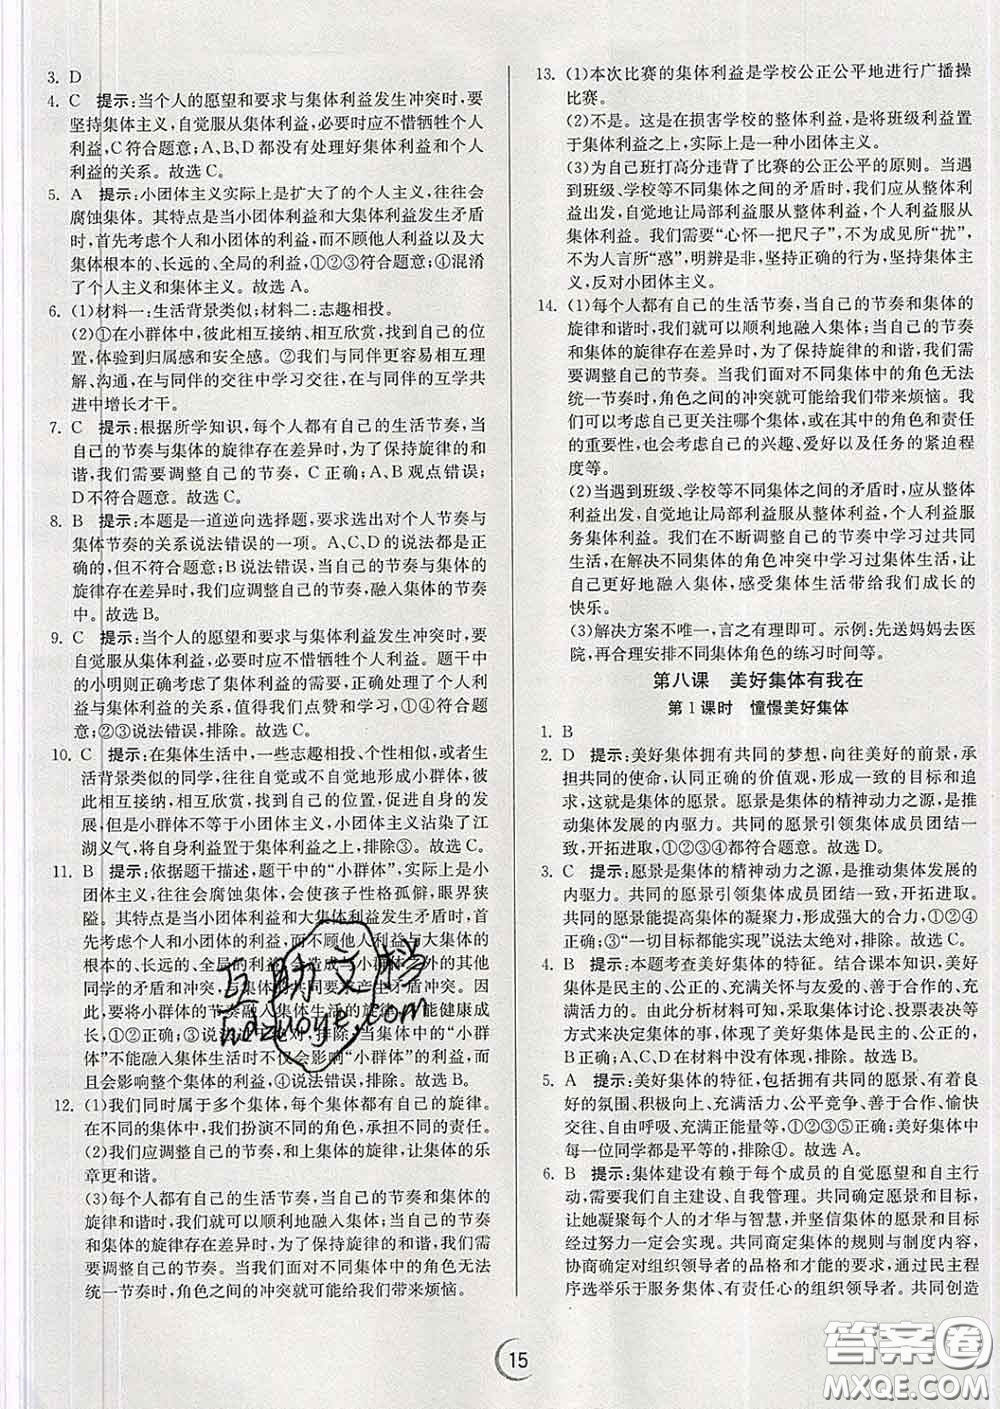 3. D
4. C 提示:当个人的愿望和要求与集体利益发生冲突时,要
坚持集体主义,自觉服从集体利益,必要时应不惜牺牲个人
利益,C符合题意;A、B、D都没有处理好集体利益和个人
利益的关系。故选C。
5. A 提示:小团体主义实际上是扩大了的个人主义,往往会
腐蚀集体。其特点是当小团体利益和大集体利益发生矛盾
时,首先考虑个人和小团体的利益,而不顾他人利益以及大
集体根本的、长远的、全局的利益,①②③符合题意;④混淆
了个人主义和集体主义。故选A。
6. (1)材料一:生活背景类似;材料二:志趣相投。
(2)①在小群体中,彼此相互接纳、相互欣赏,找到自己的位
置,体验到归属感和安全感。②我们与同伴更容易相互理
解、沟通,在与同伴的交往中学习交往,在与同伴的互学共
进中增长才干。
7. C 提示:根据所学知识,每个人都有自己的生活节奏,当
自己的节奏与集体的旋律存在差异时,为了保持旋律的和
谐,我们需要调整自己的节奏,C正确;A、B观点错误;
D不符合题意。故选C。
8. B 提示:本题是一道逆向选择题,要求选出对个人节奏与
集体节奏的关系说法错误的一项。A、C、D的说法都是正
确的,但不符合题意;B说法错误,当自己的节奏与集体的
旋律存在差异时,我们应调整自己的节奏,融入集体的节奏
中。故选B。
9. C 提示:当个人的愿望和要求与集体利益发生冲突时,要
自觉服从集体利益,必要时应不惜牺牲个人利益。题干中
的小明则正确处理了集体利益与个人利益的关系,正确处
理了集体利益和个人利益的关系,值得我们点赞和学习,①④
符合题意;②③说法错误,排除。故选C。
10. C 提示:在集体生活中,一些志趣相投、个性相似,或者生
活背景类似的同学,往往自觉或不自觉地形成小群体,彼
此相互接纳,相互欣赏,找到自己的位置,促进自身的发展
,但是小群体不等于小团体主义,小团体主义沾染了江
湖义气,将自身利益置于集体利益之上,排除③。故选C。
11. B 提示:依据题干描述,题干中的“小群体”,实际上是小
团体主义,往往会腐蚀集体,会使孩子性格孤僻,眼界狭
隘。其特点是当小团体利益和大集体利益发生矛盾时,首
先考虑个人和小团体的利益,而不顾他人利益与大集体的
根本的、长远的、全局的利益,
同学的矛盾和冲突,
此,要将小群体的节奏融入集体生活的旋律,
长,①②正确;③说法
体”不能融入集体生活时不仅会影响“小群体”的利益,而
且会影响整个集体的利益,④说法错误,排除。故选B。
12. (1)我们同时属于多个集体,每个集体都有自己的旋律。
在不同的集体中,我们扮演不同的角色,承担不同的责任。
(2)我们应调整自己的节奏,和上集体的旋律,让集体的乐
章更和谐。
(3)每个人都有自己的生活节奏,当自己的节奏和集体的
旋律和谐时,我们就可以顺利地融入集体;当自己的节奏
和集体的旋律存在差异时,为了保持旋律的和谐,我们需要
调整自己的节奏。当我们面对不同集体中的角色无法
统一节奏时,角色之间的冲突就可能给我们带来烦恼。
13. (1)本次比赛的集体利益是学校公正公平地进行广播操
比赛。
(2)不是。这是在损害学校的整体利益,是将班级利益置
于集体利益之上,实际上是一种小团体主义。
(3)为自己班打高分违背了比赛的公正公平的原则。当遇
到班级、学校等不同集体之间的矛盾时,我们应从整体利
益出发,自觉地让局部利益服从整体利益,个人利益服从
集体利益。我们需要“心怀一把尺子”,不为成见所“扰”,
不为人言所“惑”,明辨是非,坚持正确的行为,坚持集体主
义,反对小团体主义。
14. (1)每个人都有自己的生活节奏,当自己的节奏和集体的
旋律和谐时,我们就可以顺利地融入集体;当自己的节奏
和集体的旋律存在差异时,为了保持旋律的和谐,我们需
要调整自己的节奏。当我们面对不同集体中的角色无法
统一节奏时,角色之间的冲突就可能给我们带来烦恼。我
们可以考虑自己更关注哪个集体,或在其中的角色和责任
的重要性,也会考虑自己的兴趣、爱好以及任务的紧迫程
度等。
(2)当遇到班级、学校等不同集体之间的矛盾时,应从整体
利益出发,自觉地让局部利益服从整体利益、个人利益服
务集体利益。我们在不断调整自己的节奏中学习过共同
生活,在解决不同集体的角色冲突中学习过集体生活,让
自己更好地融入集体,感受集体生活带给我们成长的
快乐。
(3)解决方案不唯一,言之有理即可。示例:先送妈妈去医
院,再合理安排不同集体角色的练习时间等。
第八课 美好集体有我在
第1课时 憧憬美好集体
1. B
2. D 提示:美好集体拥有共同的梦想,向往美好的前景,承
担共同的使命,认同正确的价值观,形成一致的目标和追
求,这就是集体的愿景。愿景是集体的精神动力之源,是推
动集体发展的内驱力。共同的愿景引领集体成员团结一
致、开拓进取,①②③④都符合题意。故选D。
3. C 提示:愿景是集体的精神动力之源,是推动集体发展的
内驱力。共同的愿景引领集体成员团结一致,开拓进取。
共同的愿景能提高集体的凝聚力,形成强大的合力,①②④
正确;③“一切目标都能实现”说法太绝对,排除。故选C。
4. B 提示:本题考查美好集体的特征。结合课本知识,美好
集体是民主的、公正的、充满关怀与友爱的、善于合作的、
充满活力的。由此分析材料可知,采取集体讨论、投票表决等
方式来决定集体的事,体现了美好集体是民主的、公正的,
B正确;A、C、D在材料中没有体现,排除。故选B。
5. A 提示:美好集体的特征,包括拥有共同的愿景、有良
好的氛围、积极向上、充满活力、公平竞争、善于合作、愉快
交往、自由呼吸、充满正能量等,①②③⑤正确;美好集体中
每一位同学都是平等的,排除④。故选A。
6. B 提示:集体建设有赖于每个成员的自觉愿望和自主行
动,需要我们自主建设、自我管理。共同确定愿景和目标,
让她凝聚每个人的才华与智慧,并坚信集体的愿景和目标
经过努力一定会实现。共同商定集体的规则与制度内容,
协商确定对组织领导者的品格和才能的要求,通过民主程
序选举乐于服务集体、有责任心的组织领导者。共同创造
15
互助文档
hdzuoye.com
答案圈
MXQE.COM